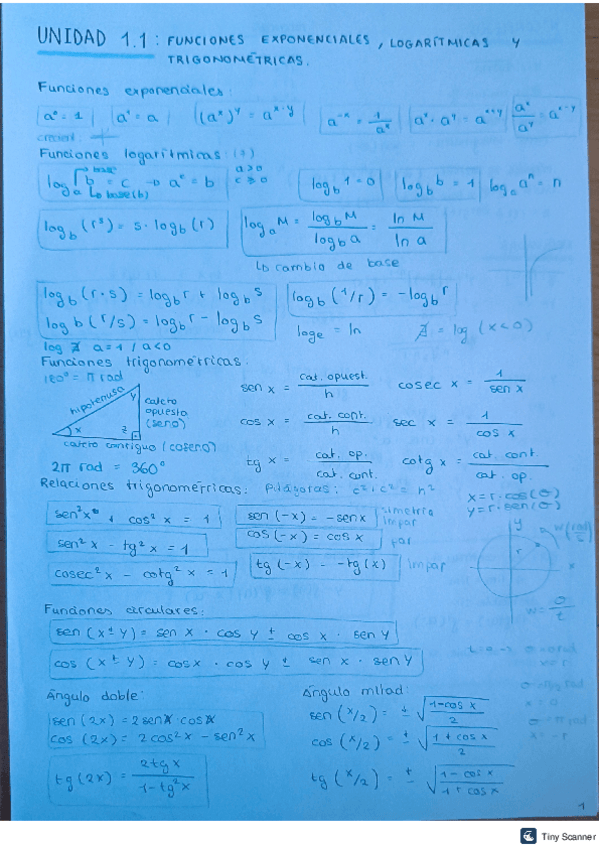 UNIDAD 1.1: FUNCIONES EXPONENCIALES, LOGARÍTMICAS Y
TRIGONOMÉTRICAS.
Funciones exponenciales:
a⁰ = 1 a¹ = a (aˣ)ʸ = aˣ·ʸ a⁻ˣ = 1/aˣ aˣ · aʸ = aˣ⁺ʸ aˣ/aʸ = aˣ⁻ʸ
Funciones logarítmicas
base a>0
logₐ b = c → aᶜ = b
base(b)
log_b 1 = 0 log_b b = 1 logₐ aⁿ = n
log_b (rˢ) = s · log_b (r) logₐ M = log_b M / log_b a = ln M / ln a
↳ cambio de base
log_b (r · s) = log_b r + log_b s log_b (1/r) = -log_b r
log b (r/s) = log_b r - log_b s logₑ = ln ∄ = log (x<0)
log ∄ a=1 / a<0
Funciones trigonométricas:
180° = π rad
hipotenusa y cateto opuesto (seno)
x z
cateto contiguo (coseno)
2π rad = 360°
sen x = cat. opuest. / h cosec x = 1 / sen x
cos x = cat. cont. / h sec x = 1 / cos x
tg x = cat. op. / cat. cont. cotg x = cat. cont. / cat. op.
Relaciones trigonométricas: Pitágoras: c² + c² = h²
x = r · cos(θ)
y = r · sen(θ)
sen² x + cos² x = 1 sen (-x) = -sen x simetría impar
sen² x - tg² x = 1 cos (-x) = cos x par
cosec² x - cotg² x = 1 tg (-x) = -tg (x) impar
y w (rad/s)
r x
w = θ/t
Funciones circulares:
sen (x ± y) = sen x · cos y ± cos x · sen y
cos (x ± y) = cos x · cos y ± sen x · sen y
Ángulo doble: Ángulo mitad:
sen (2x) = 2 sen x · cos x sen (x/2) = ± √(1-cos x / 2)
cos (2x) = 2 cos² x - sen² x cos (x/2) = ± √(1 + cos x / 2)
tg (2x) = 2 tg x / 1 - tg² x tg (x/2) = ± √(1 - cos x / 1 + cos x)
1
Tiny Scanner